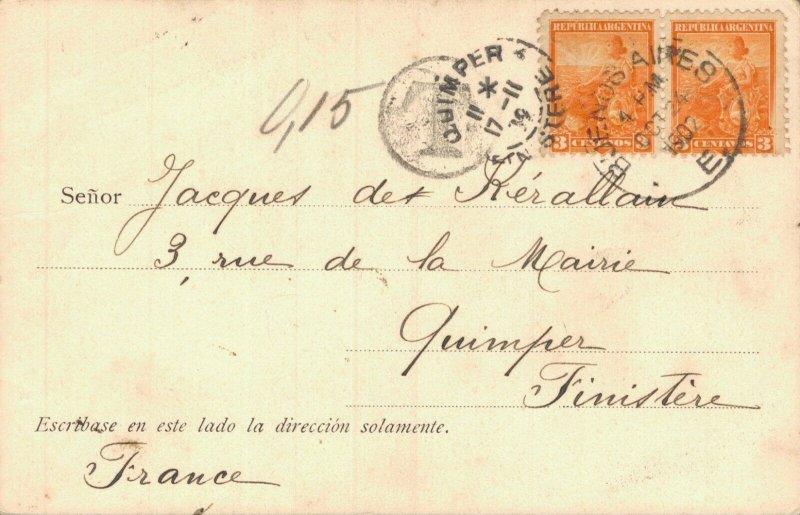 REPÚBLICA ARGENTINA REPÚBLICA ARGENTINA
3 CENTAVOS CENTAVOS 3
BUENOS AIRES
4 PM
OCT
1902
E
QUIMPER
FINISTERE
T
0,15
Señor Jacques de Kérallain
3, rue de la Mairie
Quimper
Finistère
Escríbase en este lado la dirección solamente.
France